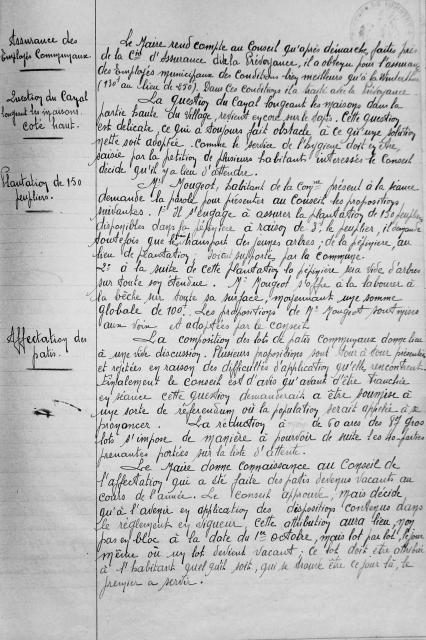 Assurance des
Employés Communaux.
Le Maire rend compte au Conseil qu'après démarches faites près
de la Cie d'Assurance dite la Prévoyance, il a obtenu pour l'assurance
des Employés municipaux des conditions bien meilleures qu'à la Winterthur
(130f au lieu de 250). Dans ces conditions il a traité avec la Prévoyance.
Question du Cayal
longeant les maisons
Côté haut.
La question du Cayal longeant les maisons dans la
partie haute du village revient encore sur le tapis. Cette question
est délicate, ce qui a toujours fait obstacle à ce qu'une solution
nette soit adoptée. Comme le service de l'hygiène doit en être
saisie par la pétition de plusieurs habitants intéressés le Conseil
décide qu'il y a lieu d'attendre.
Plantation de 150
peupliers.
Mr Mougeot, habitant de la Comne présent à la séance
demande la parole pour présenter au Conseil les propositions
suivantes. 1° Il s'engage à assurer la plantation de 150 peupliers
disponibles dans sa pépinière à raison de 3f le peuplier, il demande
toutefois que le transport des jeunes arbres, de la pépinière au
lieu de plantation, soit supporté par la commune.
2° à la suite de cette plantation la pépinière sera vide d'arbres
sur toute son étendue. Mr Mougeot s'offre à la labourer à
la bêche sur toute sa surface, moyennant une somme
globale de 100f. Les propositions de Mr Mougeot sont mises
aux voix et adoptées par le conseil.
Affectation des
patis.
La composition des lots de patis communaux donne lieu
à une vive discussion. Plusieurs propositions sont tour à tour présentées
et rejetées en raison des difficultés d'application qu'elle rencontrent
Finalement le Conseil est d'avis qu'avant d'être tranchée
en séance cette question demanderait a être soumise à
une sorte de référendum où la population serait appelée à se
prononcer. La réduction à de 60 ares des gros
lots s'impose de manière à pourvoir de suite les 40 parties
prenantes portées sur la liste d'attente.
Le Maire donne connaissance au Conseil de
l'affectation qui a été faite des patis devenus vacants au
cours de l'année. Le Conseil approuve, mais décide
qu'à l'avenir en application des dispositions contenues dans
le règlement en vigueur, cette attribution aura lieu, non
pas en bloc à la date du 1er octobre, mais lot par lot, le jour
même où un lot devient vacant; ce lot doit être attribué
à l'habitant quel qu'il soit, qui se trouve être ce jour là, le
premier a servir.